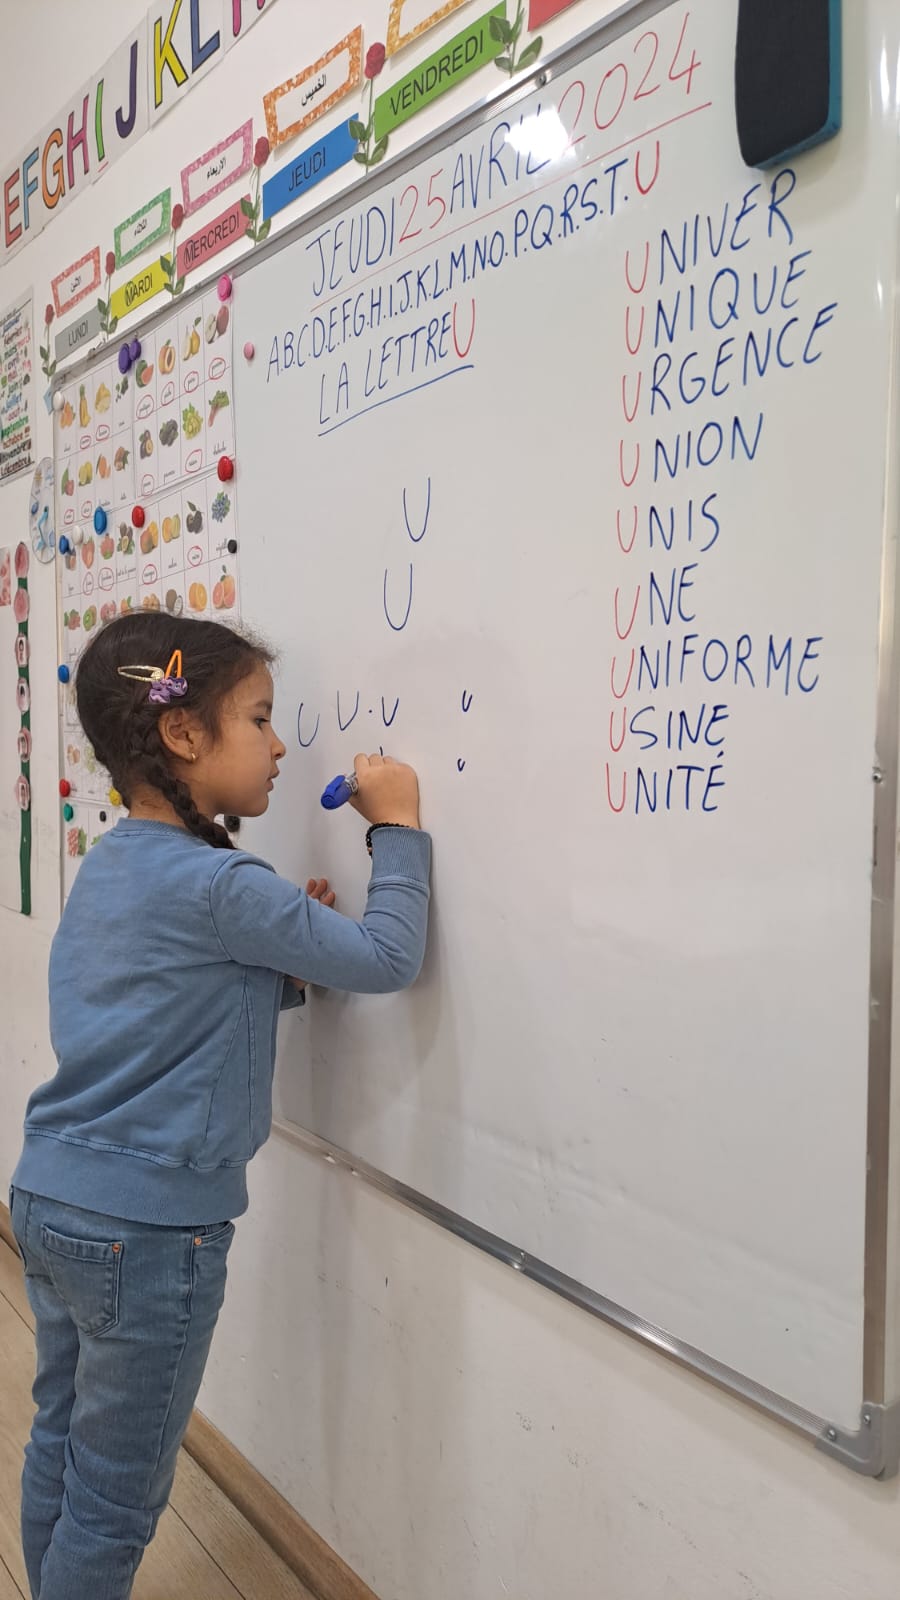 EFGHIJKL
الخميس
VENDREDI
JEUDI
الاربعاء
MERCREDI
الثلاثاء
MARDI
LUNDI
JEUDI 25 AVRIL 2024
A.B.C.D.E.F.G.H.I.J.K.L.M.N.O.P.Q.R.S.T.U
LA LETTRE U
UNIVER
UNIQUE
URGENCE
UNION
UNIS
UNE
UNIFORME
USINE
UNITÉ
U
U
U U . U U
U